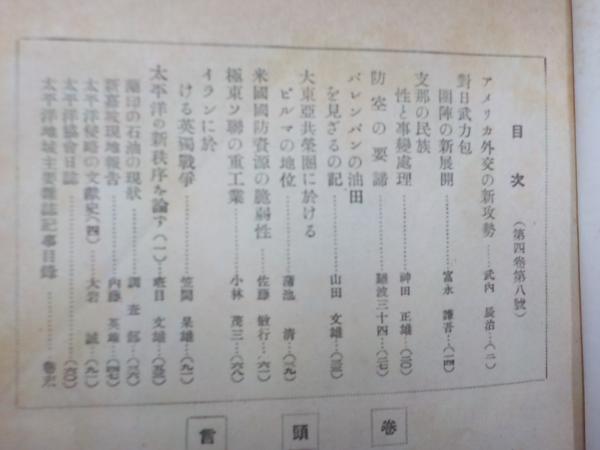 目次 (第四卷第八號)
アメリカ外交の新攻勢……武内 辰治…(二)
對日武力包
圍陣の新展開……富永 謙吾…(一四)
支那の民族
性と事變處理……神田 正雄…(二〇)
防空の要諦……難波三十四…(二七)
パレンバンの油田
を見ざるの記……山田 文雄…(三三)
大東亞共榮圈に於ける
ビルマの地位……蒲池 清…(八九)
米國國防資源の脆弱性……佐藤 敏行…(六二)
極東ソ聯の重工業……小林 茂三…(六八)
イランに於
ける英獨戰爭……笠間 杲雄…(九一)
太平洋の新秩序を論ず(一)…文雄…
蘭印の石油の現狀……調査部…
新嘉坡現地報告……內藤 英雄…
太平洋侵略の文獻史(四)…大岩 誠…
太平洋協會日誌
太平洋地域主要雜誌記事目錄……卷末
卷頭言